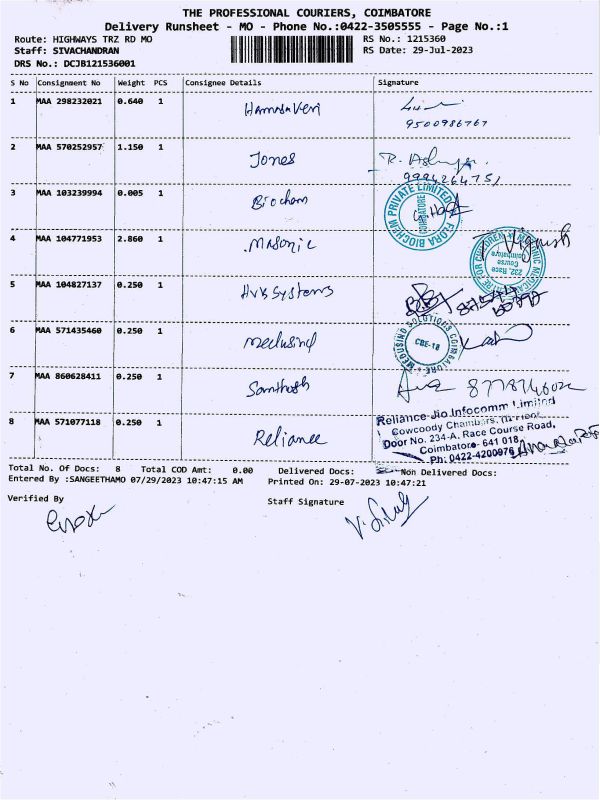 THE PROFESSIONAL COURIERS, COIMBATORE
Delivery Runsheet - MO - Phone No.:0422-3505555 - Page No.:1
Route: HIGHWAYS TRZ RD MO RS No.: 1215360
Staff: SIVACHANDRAN RS Date: 29-Jul-2023
DRS No.: DCJB121536001
S No Consignment No Weight PCS Consignee Details Signature
1 MAA 298232021 0.640 1 Hamsaveni
9500986767
2 MAA 570252957 1.150 1 Jones
9994264751
3 MAA 103239994 0.005 1 Biochem
FLORA BIOCHEM PRIVATE LIMITED
COIMBATORE
4 MAA 104771953 2.860 1 Masonic Vignesh
232, Race
Course
Coimbatore
5 MAA 104827137 0.250 1 HVB Systems
6 MAA 571435460 0.250 1 Medusind
MEDUSIND SOLUTIONS COIMBATORE
CBE-18
7 MAA 860628411 0.250 1 Santhosh
8 MAA 571077118 0.250 1 Reliance
Reliance Jio Infocomm Limited
Cowcoody Chambers,
Door No. 234-A, Race Course Road,
Coimbatore- 641 018
Ph: 0422-4200976
Total No. Of Docs: 8 Total COD Amt: 0.00 Delivered Docs: Non Delivered Docs:
Entered By :SANGEETHAMO 07/29/2023 10:47:15 AM Printed On: 29-07-2023 10:47:21
Verified By Staff Signature